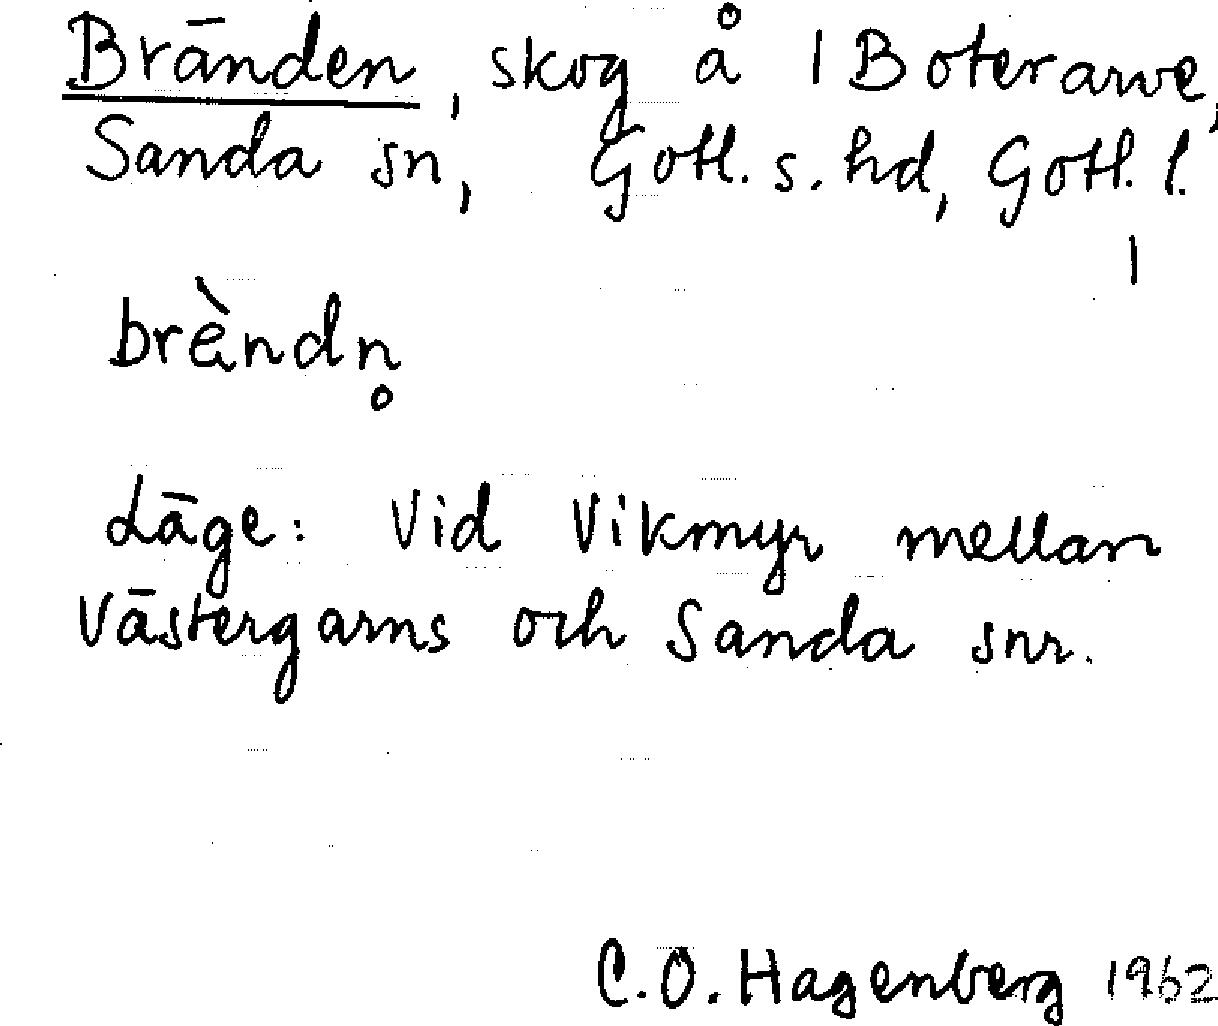 Bränden, skog å 1 Boterarve,
Sanda sn, Gotl. s. hd, Gotl. l.
1
brèndn̥
Läge: Vid Vikmyr mellan
Västergarns och Sanda snr.
C.O. Hagenberg 1962